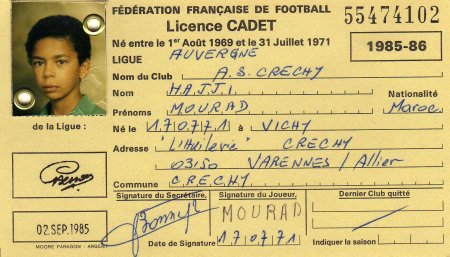 FÉDÉRATION FRANÇAISE DE FOOTBALL
55474102
Licence CADET
Né entre le 1er Août 1969 et le 31 Juillet 1971
1985-86
LIGUE AUVERGNE
Nom du Club A.S. CRECHY
Nom HAJJI
Nationalité
Prénoms MOURAD
Maroc
de la Ligue :
Né le 17.07.71 à VICHY
Adresse "L'Huilerie" CRECHY
03150 VARENNES/Allier
Commune CRECHY
Signature du Secrétaire,
Signature du Joueur,
Dernier Club quitté
MOURAD
02 SEP. 1985
Date de Signature 170771
Indiquer la saison
MOORE PARAGON - ARGENT